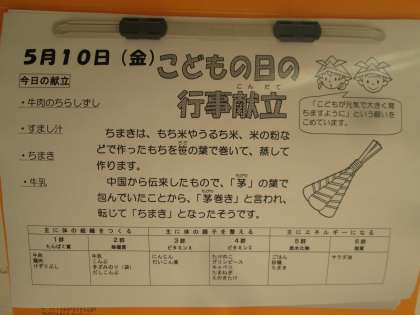 5月10日（金）
こどもの日の
こんだて
行事献立
今日の献立
・牛肉のちらしずし
・すまし汁
・ちまき
・牛乳
「こどもが元気で大きく育
ちますように」という願いを
こめています。
ちまきは、もち米やうるち米、米の粉な
どで作ったもちを笹の葉で巻いて、蒸して
作ります。
中国から伝来したもので、「茅」の葉で
包んでいたことから、「茅巻き」と言われ、
転じて「ちまき」となったそうです。
主に体の組織をつくる 主に体の調子を整える 主にエネルギーになる
1群 2群 3群 4群 5群 6群
たんぱく質 無機質 ビタミンA ビタミンC 炭水化物 脂質
牛肉 牛乳 にんじん たけのこ ごはん サラダ油
鶏肉 こんぶ だいこん葉 グリンピース 砂糖
けずりぶし きざみのり（袋） キャベツ ちまき
だしこんぶ たまねぎ
えのきたけ